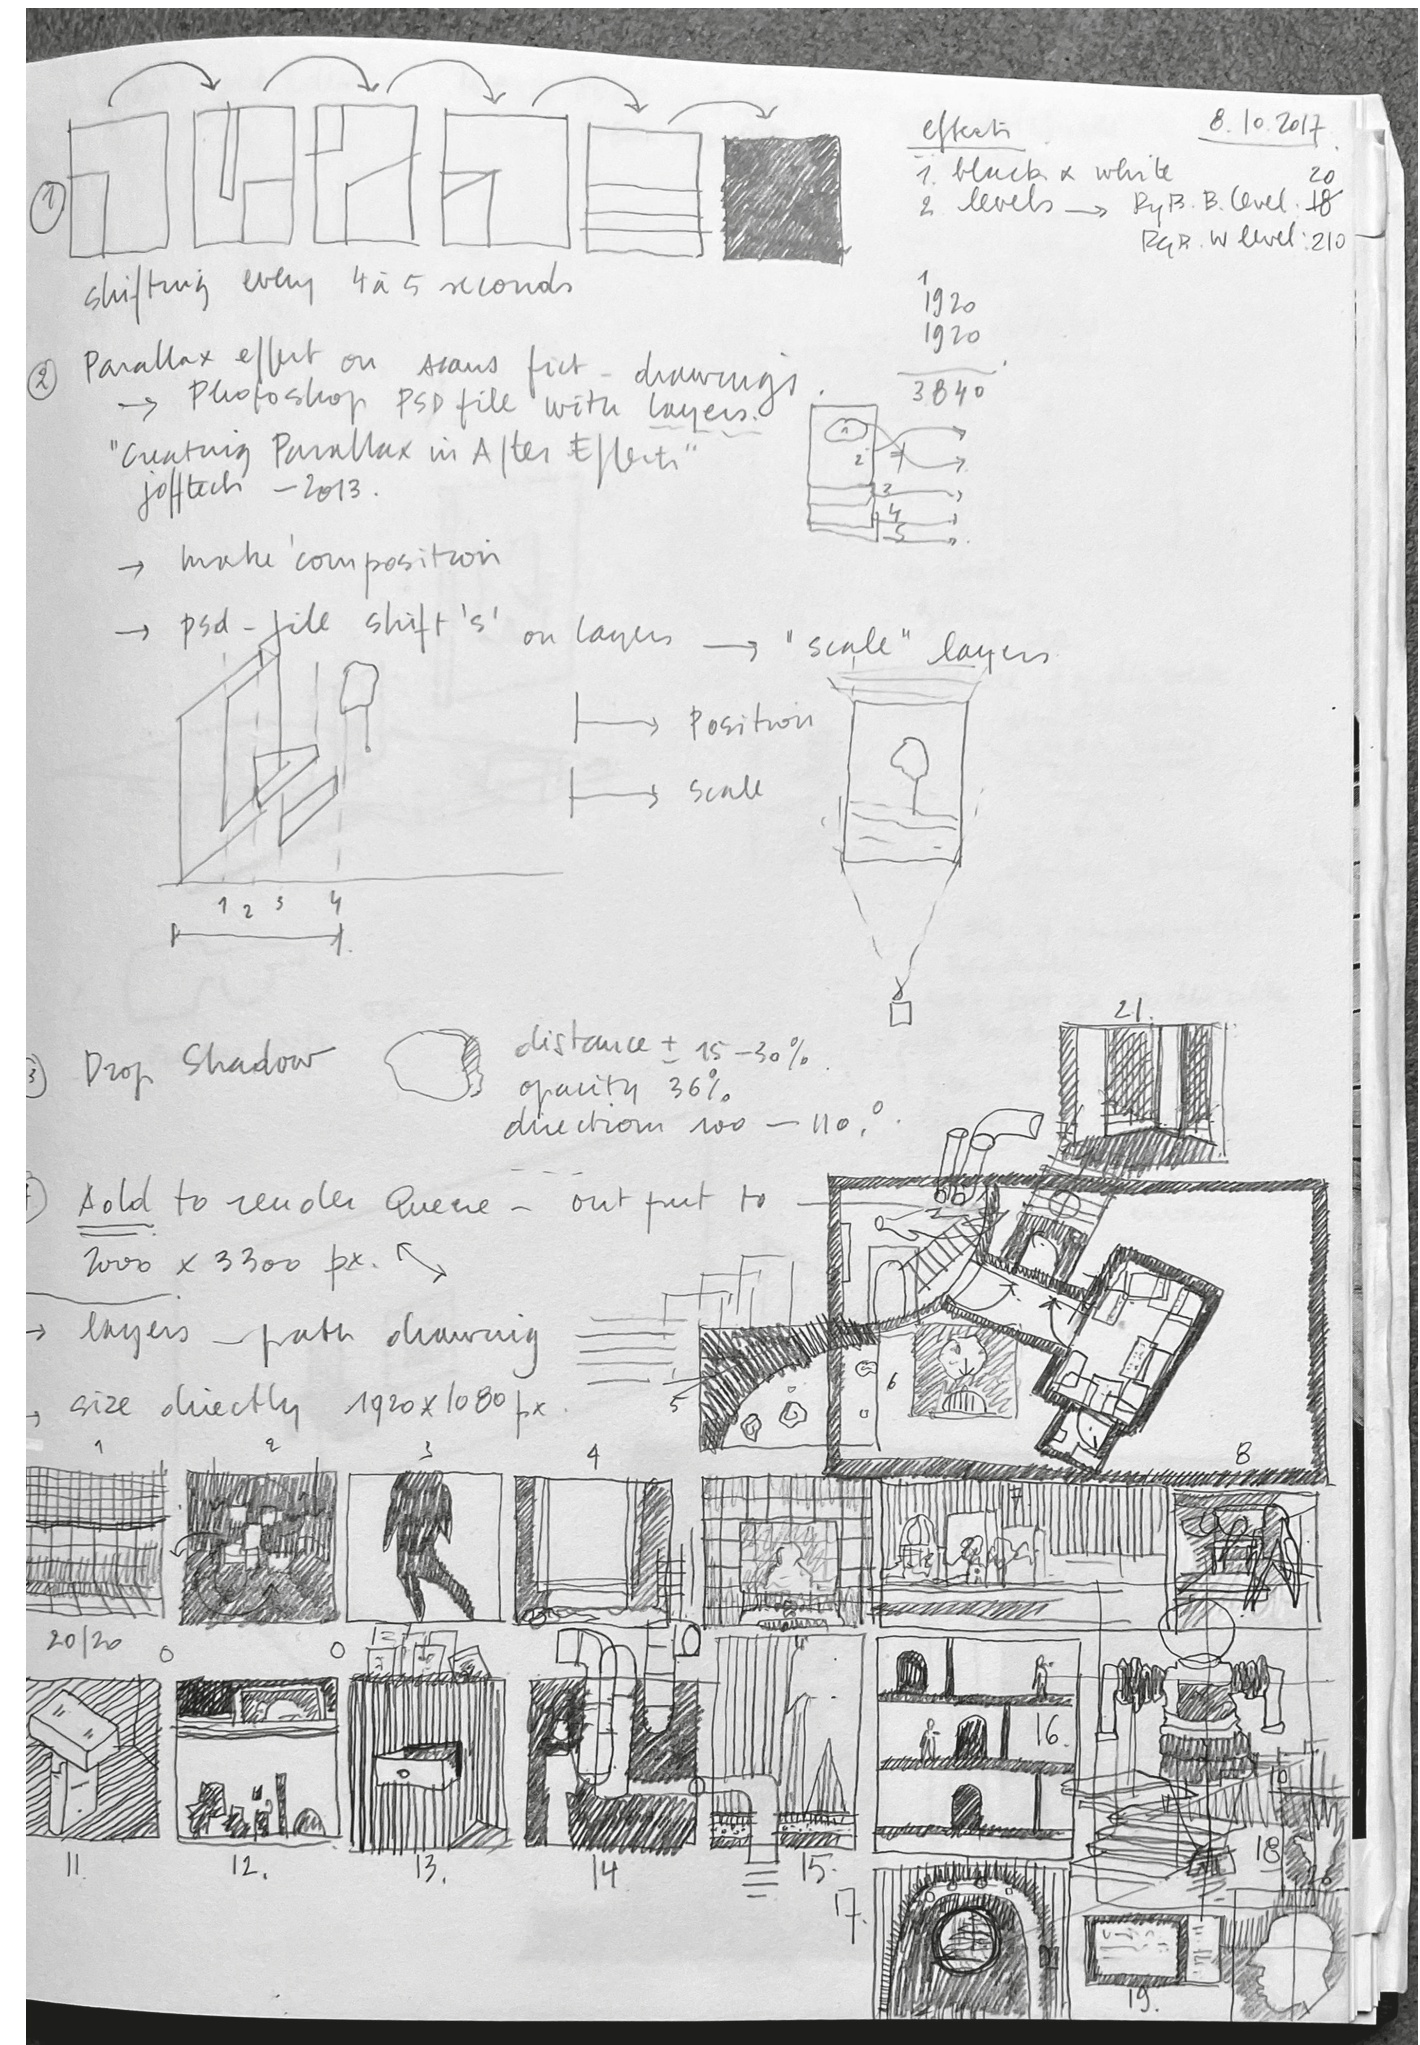 effects
8.10.2017
1. black & white 20
2 levels → RgB. B. level. 18
RgB. W level: 210
1
shifting every 4 à 5 seconds
1
1920
1920
3840
2 Parallax effect on fict - drawings.
→ Photoshop PSD file with layers.
"Creating Parallax in After Effects"
jofftech - 2013.
1
2
3
4
5
→ make composition
→ psd - file shift 's' on layers → "scale" layers
→ Position
→ scale
1 2 3 4
3 Drop Shadow
distance ± 15 - 30%.
opacity 36%
direction 100 - 110.°.
21.
Add to render Queue - out put to
2000 x 3300 px.
→ layers - path drawing
→ size directly 1920x1080 px.
5
6
8
1 2 3 4
7
20/20
16.
11. 12. 13. 14 15.
18
17.
19.